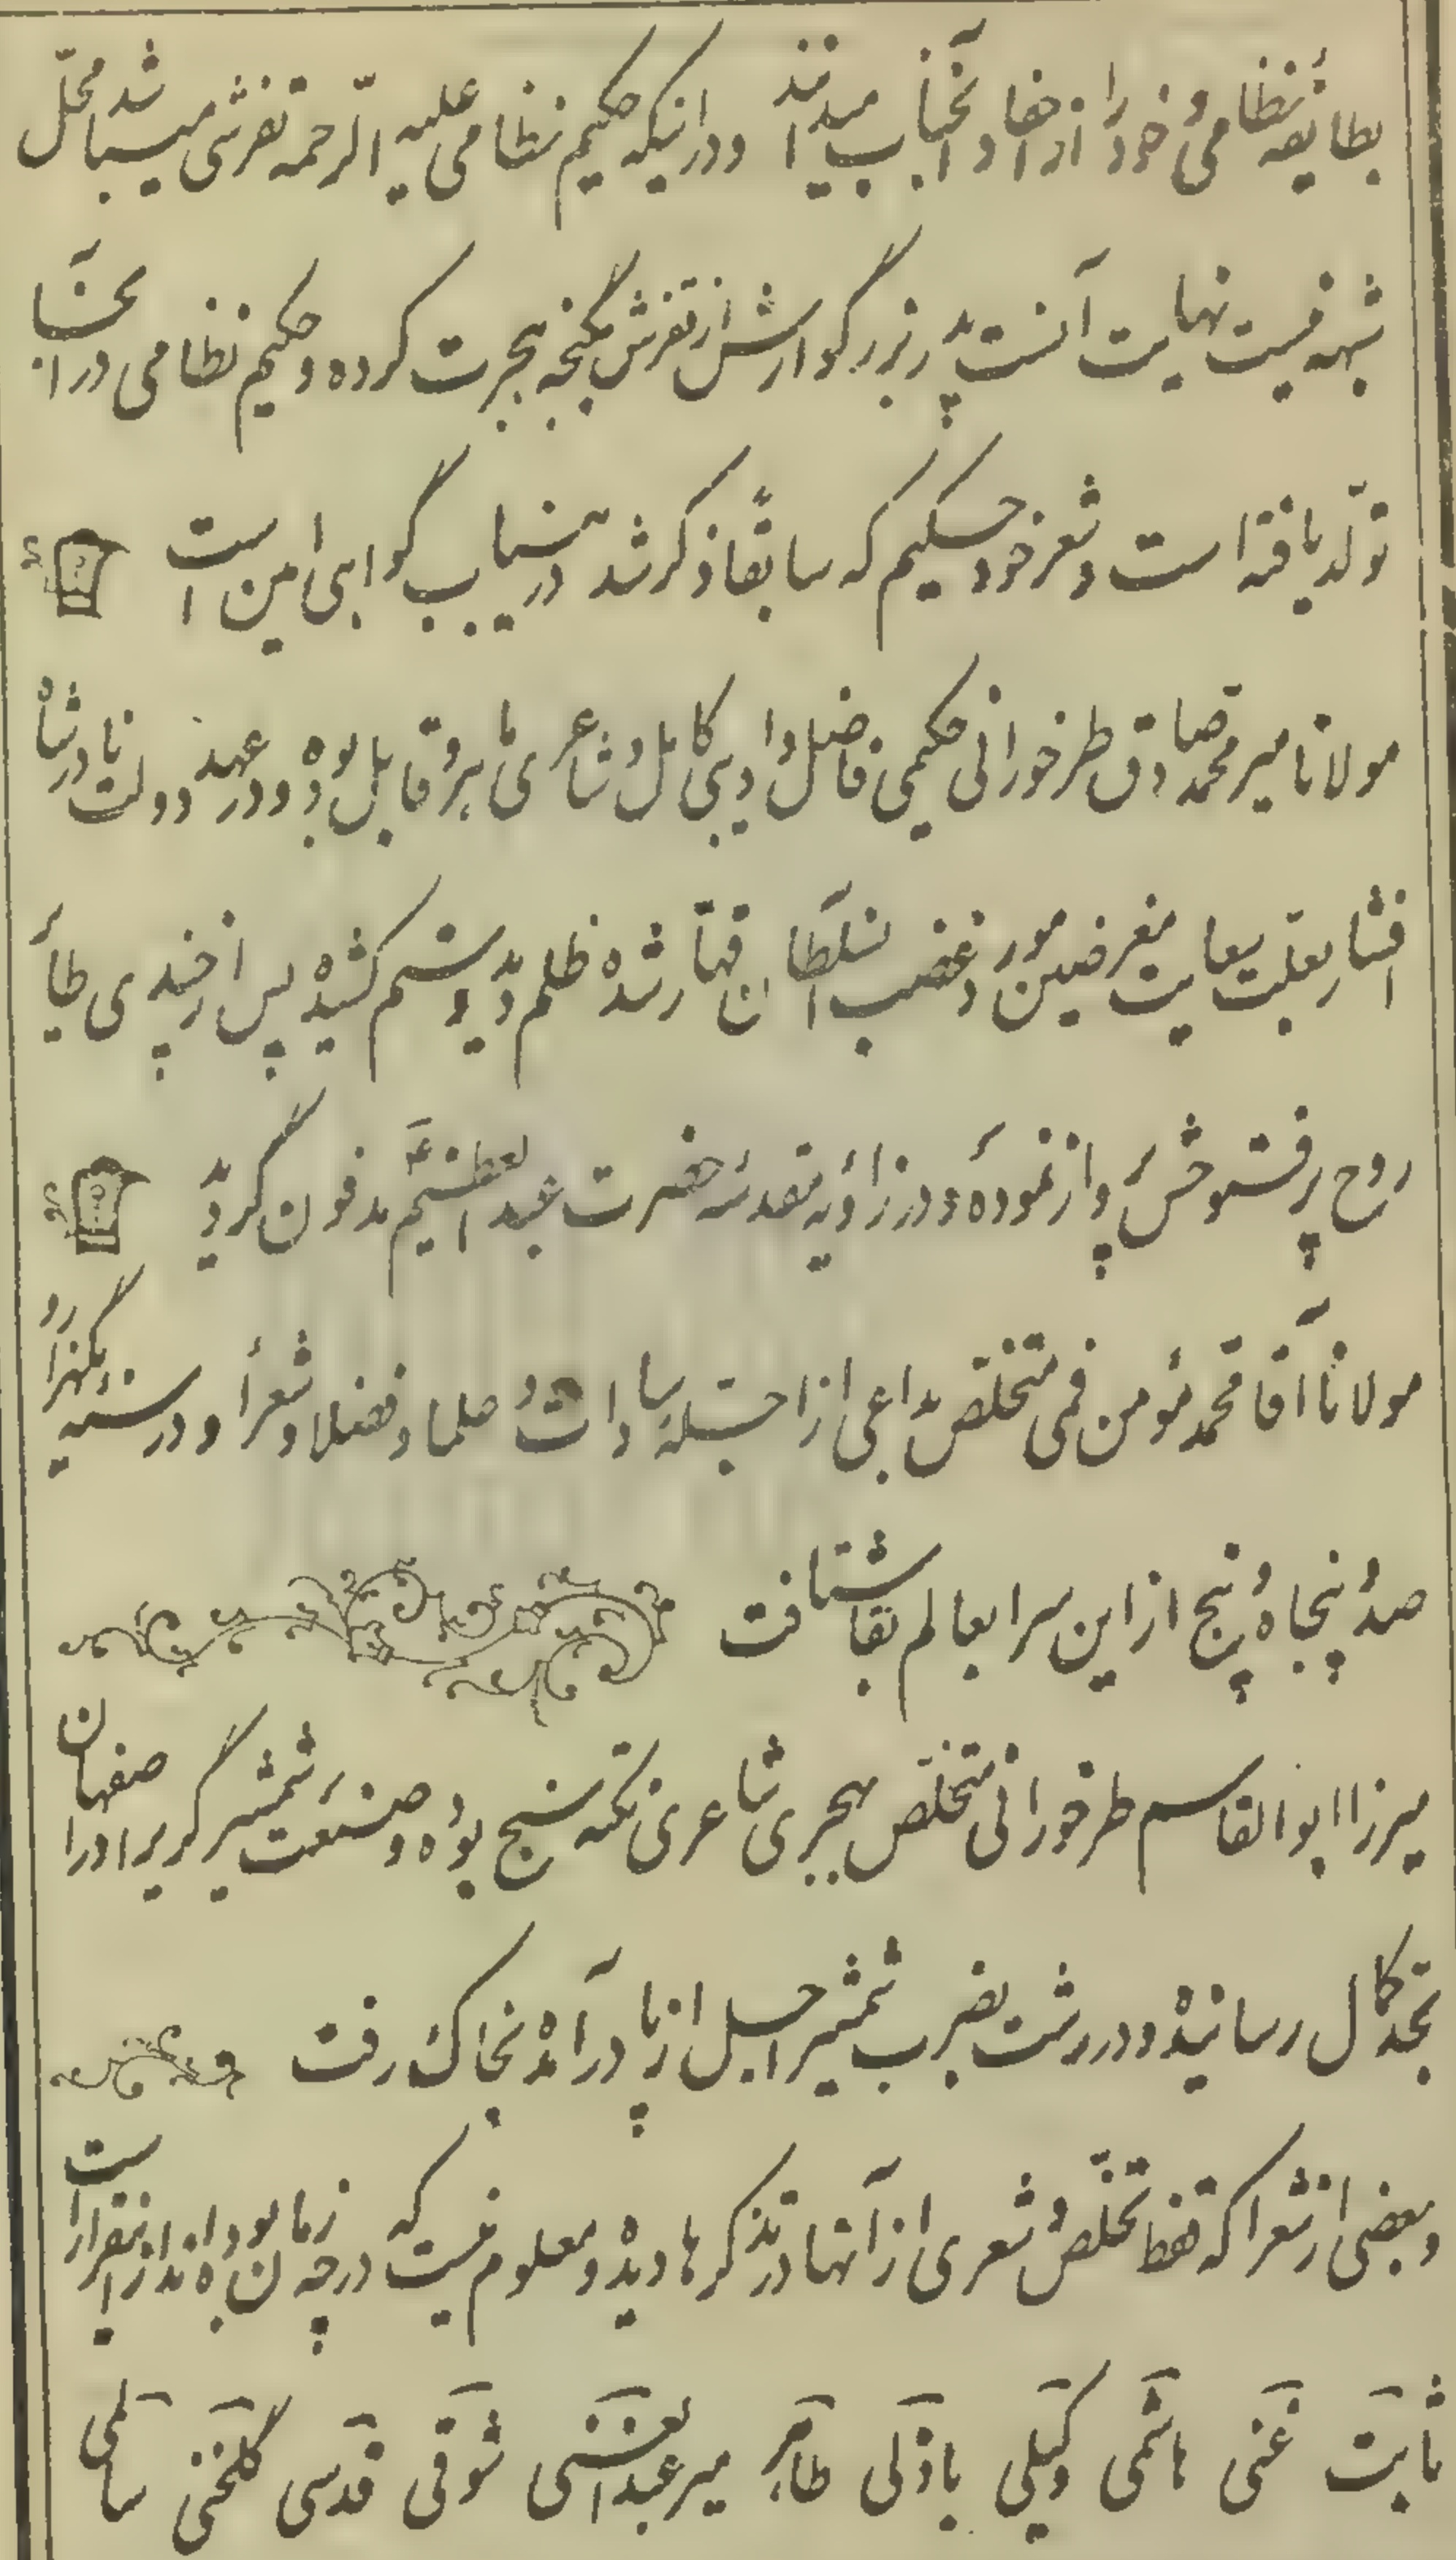 بطائفهٔ نظامی و خود را از احفاد آنجناب میدانند و در اینکه حکیم نظامی علیه الرّحمه تفرشی میباشد محلّ
شبهه نیست نهایت آنست پدر بزرگوارش از تفرش بگنجه هجرت کرده و حکیم نظامی در آنجا
تولّد یافته است و شعر خود حکیم که سابقاً ذکر شد در اینباب گواهی امین است
مولانا میر محمد صادق طرخورانی حکیمی فاضل و ادیبی کامل و شاعری ماهر و قابل بوده و در عهد دولت نادرشاه
افشار بعلت سعایت مغرضین مورد غضب السلطان قهّار شده ظلم دیده و ستم کشیده پس از چندی طائر
روح پر فتوحش پرواز نموده و در زاویه مقدسه حضرت عبدالعظیم ع مدفون گردید
مولانا آقا محمد مؤمن قمی متخلّص بداعی از اجلّهٔ سادات و صلحا و فضلا و شعرا و در سنه یکهزار و
صد و پنجاه و پنج از این سرا بعالم بقا شتافت
میرزا ابوالقاسم طرخورانی متخلّص بهجری شاعری نکته سنج بوده و صنعت شمشیرگریرا در اصفهان
بحد کمال رسانیده و در رشت بضرب شمشیر اجل از پا درآمده بخاک رفت
و بعضی از شعرا که فقط تخلّص و شعری از آنها در تذکرها دیده و معلوم نیست که در چه زمان بوده‌اند از اینقرار است
ثابت غنی هاشمی وکیلی باذلی طاهر میر عبدالغنی شوقی قدسی گلخنی سالمی